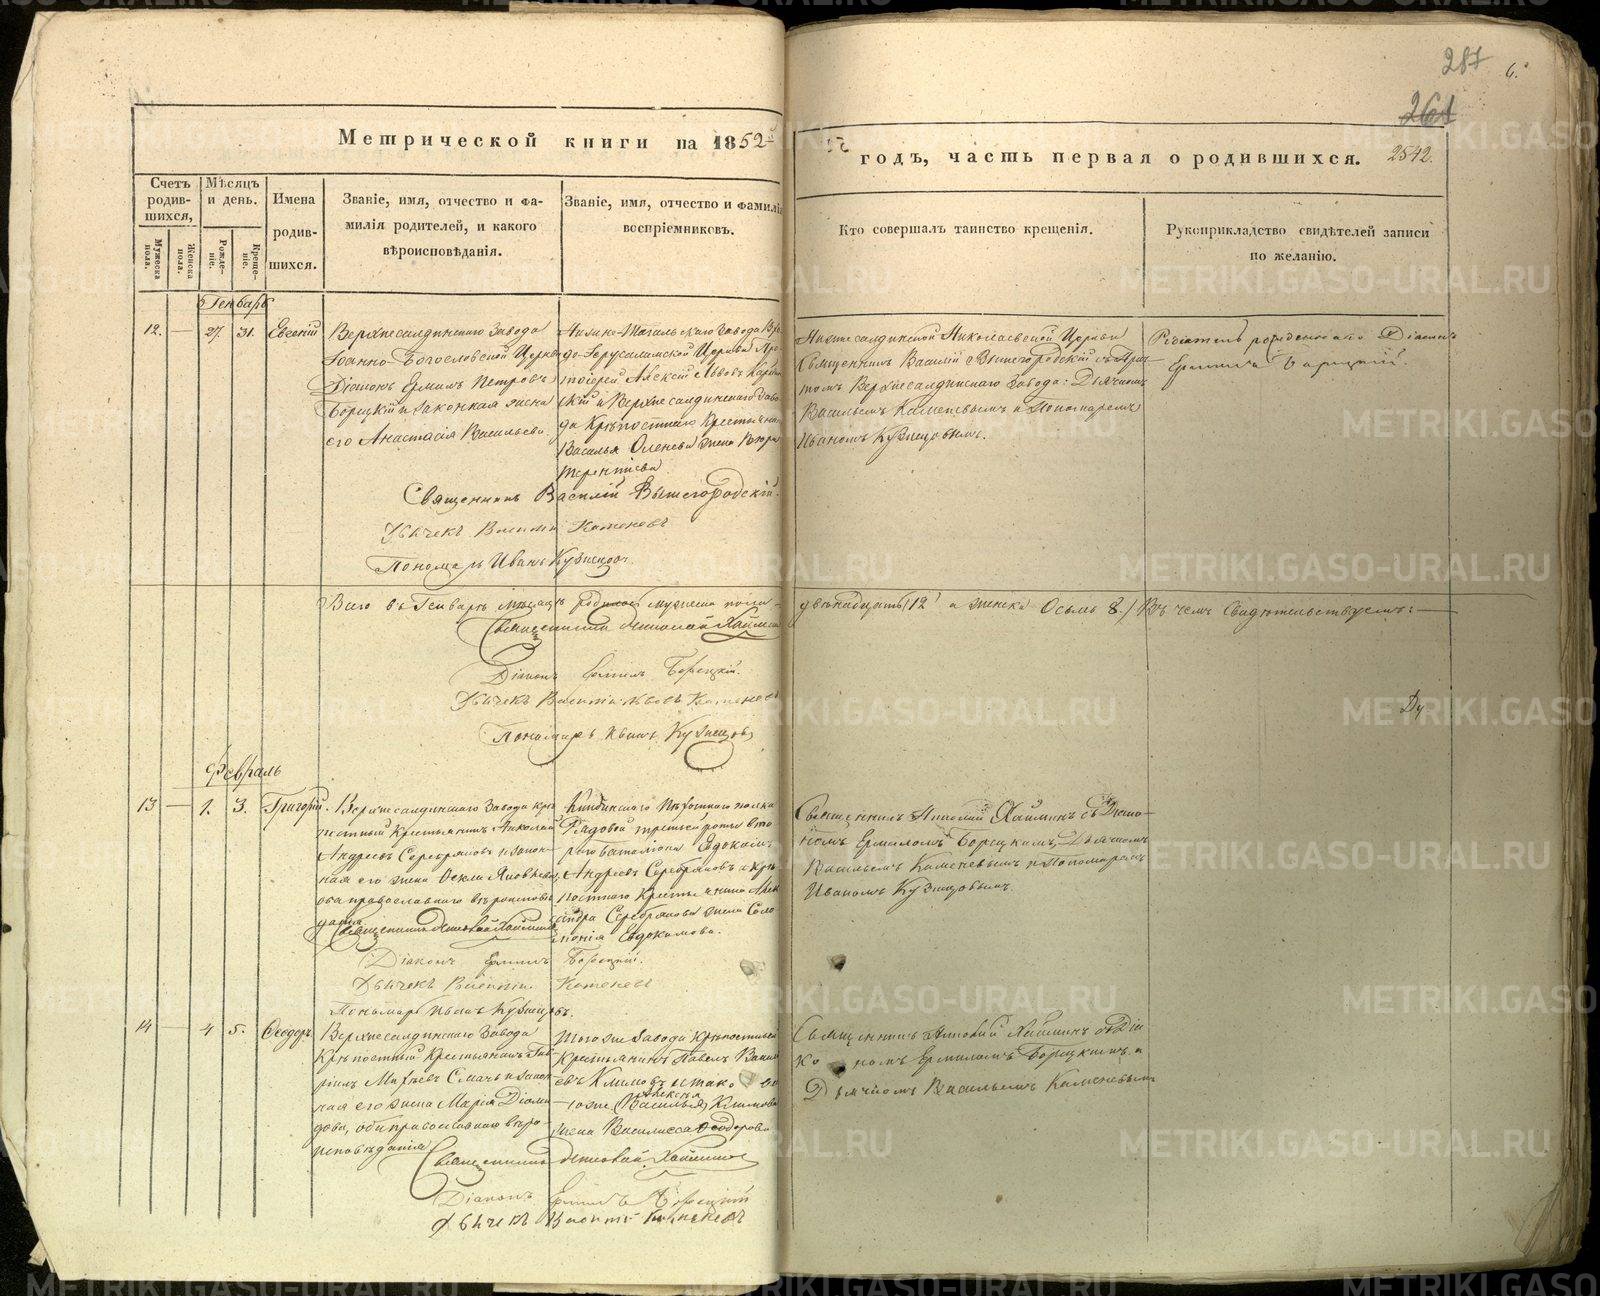 287
6.
261
Метрической книги на 1852
годъ, часть первая о родившихся. 2542.
Счетъ родив-шихся,
Мужеска пола.
Женска пола.
Мѣсяцъ и день.
Рожде-ніе.
Креще-ніе.
Имена родив-шихся.
Званіе, имя, отчество и фа-
милія родителей, и какого
вѣроисповѣданія.
Званіе, имя, отчество и фамилія
воспріемниковъ.
Кто совершалъ таинство крещенія.
Рукоприкладство свидѣтелей записи
по желанію.
Генварь
12. — 27. 31. Евгеній
Верхнесалдинскаго Завода
Іоанно-Богословской Церкви
Діаконъ Ермилъ Петровъ
Борецкій и законная жена
его Анастасія Васильева.
Нижне-Тагильскаго Завода
до-Іерусалимской Церкви Про-
тоіерей Алексій Львовъ
скій и Верхнесалдинскаго Заво-
да Крѣпостнаго Крестьянина
Василья Оленева жена
Терентіева
Нижнесалдинской Николаевской Церкви
Священникъ Василій Вышегородскій съ При-
томъ Верхнесалдинскаго Завода: Дьячкомъ
Васильемъ Каменевымъ и Пономаремъ
Иваномъ Кузнецовымъ.
Діаконъ
Ермилъ Борецкій.
Священникъ Василій Вышегородскій.
Дьячекъ Василій Каменевъ
Пономарь Иванъ Кузнецовъ
Всего въ Генварѣ мѣсяцѣ родилось мужеска пола
двѣнадцать (12) а женска осьмь 8.) Въ чемъ свидѣтельствуемъ:
Священникъ
Діаконъ Ермилъ Борецкій.
Дьячекъ Василій Львовъ Каменевъ
Пономарь Иванъ Кузнецовъ
Ду
Февраль
13 — 1. 3. Григорій.
Верхнесалдинскаго Завода крѣ-
постный Крестьянинъ Николай
Андреевъ Серебряковъ и закон-
ная его жена Ѳекла Яковлева,
оба православнаго вѣроисповѣ-
данія
пѣхотнаго полка
Рядовой третьей роты вто-
раго баталіона Евдокимъ
Андреевъ Серебряковъ и Крѣ-
постнаго Крестьянина Алек-
сандра Серебрякова жена Соло-
монія Евдокимова.
Священникъ съ Діако-
номъ Ермиломъ Борецкимъ, Дьячкомъ
Васильемъ Каменевымъ и Пономаремъ
Иваномъ Кузнецовымъ.
Священникъ
Діаконъ Ермилъ Борецкій.
Дьячекъ Василій Каменевъ
Пономарь Иванъ Кузнецовъ.
14 — 4 5. Ѳеодоръ
Верхнесалдинскаго Завода
Крѣпостный Крестьянинъ Гав-
рилъ Матѳеевъ и закон-
ная его жена Марія Діоми-
дова, оба православнаго вѣро-
исповѣданія
Того же Завода Крѣпостный
Крестьянинъ Павелъ
Климовъ и тако
Алексія
(Василья) Климова
жена Василисса Ѳеодорова
Священникъ съ Діа-
кономъ Ермиломъ Борецкимъ и
Дьячкомъ Васильемъ Каменевымъ
Священникъ
Діаконъ Ермилъ Борецкій
Дьячекъ Василій Каменевъ
METRIKI.GASO-URAL.RU